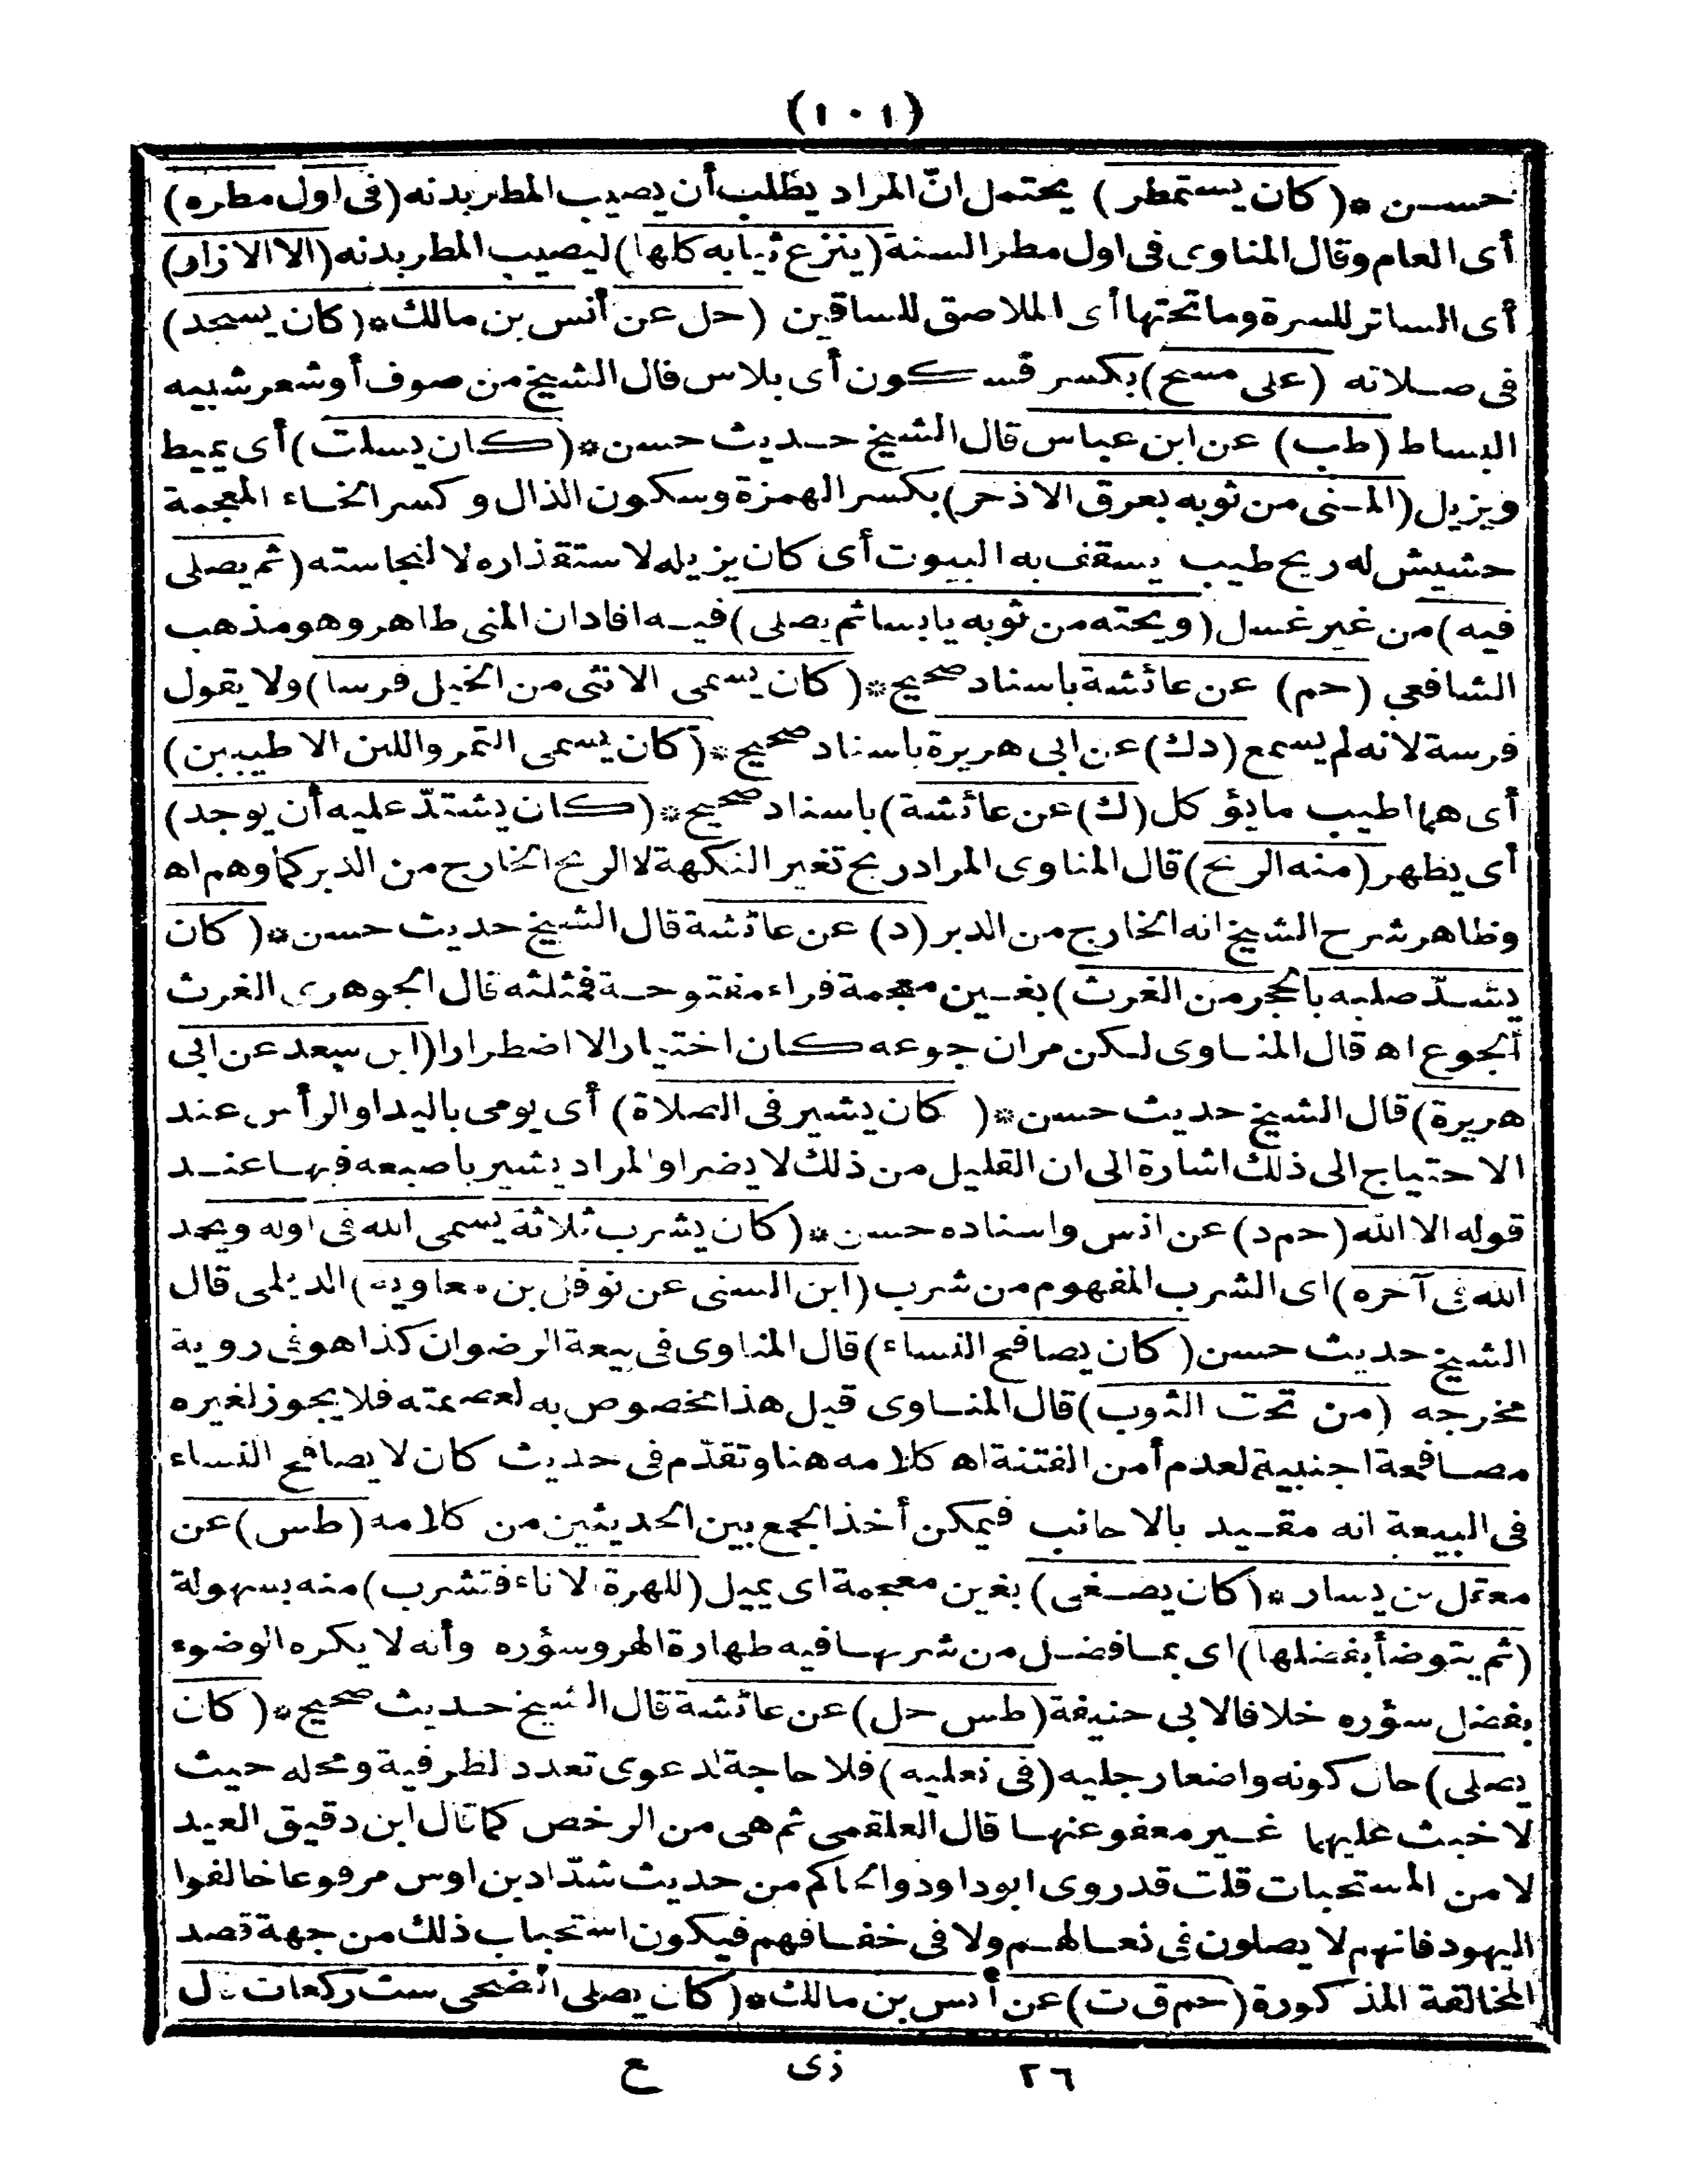 (١٠١)
حسن * (كان يستمطر) يحتمل انّ المراد يطلب أن يصيب المطر بدنه (فى اول مطره)
أى العام وقال المناوى فى اول مطر السنة (ينزع ثيابه كلها) ليصيب المطر بدنه (الا الازار)
أى الساتر للسرة وما تحتها أى الملاصق للساقين (حل عن أنس بن مالك * (كان يسجد)
فى صلاته (على مسح) بكسر فسكون أى بلاس قال الشيخ من صوف أو شعر شبيه
البساط (طب) عن ابن عباس قال الشيخ حديث حسن * (كان يسلت) أى يميط
ويزيل (المنى من ثوبه بعرق الاذخر) بكسر الهمزة وسكون الذال وكسر الخاء المعجمة
حشيش له ريح طيب يسقف به البيوت أى كان يزيله لاستقذاره لا لنجاسته (ثم يصلى
فيه) من غير غسل (ويحته من ثوبه يابسا ثم يصلى) فيه افاد ان المنى طاهر وهو مذهب
الشافعي (حم) عن عائشة باسناد صحيح * (كان يسمى الانثى من الخيل فرسا) ولا يقول
فرسة لانه لم يسمع (دك) عن ابى هريرة باسناد صحيح * (كان يسمى التمر واللبن الاطيبين)
أى هما اطيب ما يؤكل (ك) عن عائشة) باسناد صحيح * (كان يشتدّ عليه أن يوجد)
أى يظهر (منه الريح) قال المناوى المراد ريح تغير النكهة لا الريح الخارج من الدبر كما وهم اه
وظاهر شرح الشيخ انه الخارج من الدبر (د) عن عائشة قال الشيخ حديث حسن * (كان
يشدّ صلبه بالحجر من الغرث) بغين معجمة فراء مفتوحة فمثلثه قال الجوهرى الغرث
الجوع اه قال المناوى لكن مر ان جوعه كان اختيارا لا اضطرارا (ابن سعد عن ابى
هريرة) قال الشيخ حديث حسن * (كان يشير فى الصلاة) أى يومى باليد او الرأس عند
الاحتياج الى ذلك اشارة الى ان القليل من ذلك لا يضر او المراد يشير باصبعه فيها عند
قوله الا الله (حم د) عن انس واسناده حسن * (كان يشرب ثلاثة يسمى الله فى اوله ويحمد
الله فى آخره) اى الشرب المفهوم من شرب (ابن السنى عن نوفل بن معاوية) الديلمى قال
الشيخ حديث حسن (كان يصافح النساء) قال المناوى فى بيعة الرضوان كذا هو فى روية
مخرجه (من تحت الثوب) قال المناوى قيل هذا مخصوص به لعصمته فلا يجوز لغيره
مصافحة اجنبية لعدم أمن الفتنة اه كلامه هنا وتقدّم فى حديث كان لا يصافح النساء
فى البيعة انه مقيد بالاجانب فيمكن أخذ الجمع بين الحديثين من كلامه (طس) عن
معقل بن يسار * (كان يصغى) بغين معجمة اى يميل (للهرة الاناء فتشرب) منه بسهولة
(ثم يتوضأ بفضلها) اى بما فضل من شربها فيه طهارة الهر وسؤره وأنه لا يكره الوضوء
بفضل سؤره خلافا لابى حنيفة (طس حل) عن عائشة قال الشيخ حديث صحيح * (كان
يصلى) حال كونه واضعا رجليه (فى نعليه) فلا حاجة لدعوى تعدد لظرفية ومحله حيث
لا خبث عليهما غير معفو عنها قال العلقمى ثم هى من الرخص كما قال ابن دقيق العيد
لا من المستحبات قلت قد روى ابو داود والحاكم من حديث شدّاد بن اوس مرفوعا خالفوا
اليهود فانهم لا يصلون فى نعالهم ولا فى خفافهم فيكون استحباب ذلك من جهة قصد
المخالفة المذكورة (حم ق ت) عن أنس بن مالك * (كان يصلى الضحى ست ركعات
٢٦ زى ع